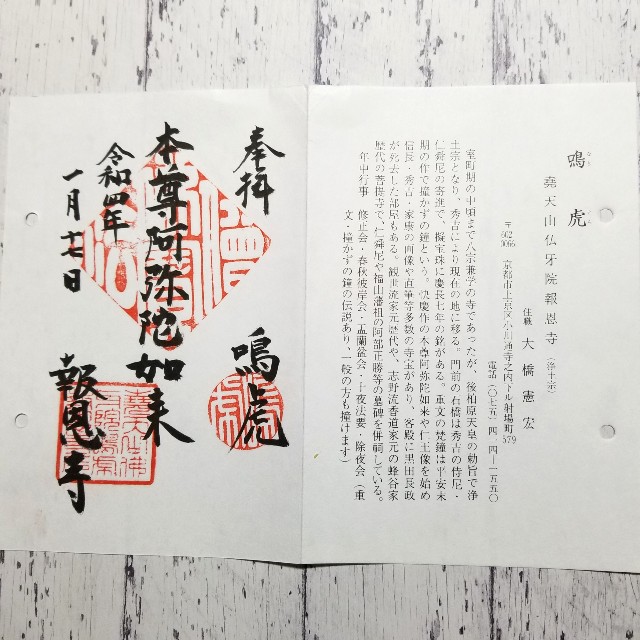 鳴虎
堯天山仏牙院報恩寺(浄土宗)
住職 大橋憲宏
〒602-0096 京都市上京区小川通寺之内下ル射場町579
電話(〇七五)四一四-一五五〇
室町期の中頃まで八宗兼学の寺であったが、後柏原天皇の勅旨で浄
土宗となり、秀吉により現在の地に移る。門前の石橋は秀吉の侍尼・
仁舜尼の寄進で、擬宝珠に慶長七年の銘がある。重文の梵鐘は平安末
期の作で撞かずの鐘という。快慶作の本尊阿弥陀如来や仁王像を始め
信長・秀吉・家康の画像や直筆等多数の寺宝があり、客殿に黒田長政
が死去した部屋もある。観世流家元歴代や、志野流香道家元の蜂谷家
歴代の菩提寺で、仁舜尼や福山藩祖の阿部正勝等の墓碑を併祠している。
年中行事 修正会・春秋彼岸会・盂蘭盆会・十夜法要・除夜会(重
文・撞かずの鐘の伝説あり、一般の方も撞けます)
奉拝
鳴虎
本尊阿弥陀如来
令和四年
一月十七日
報恩寺